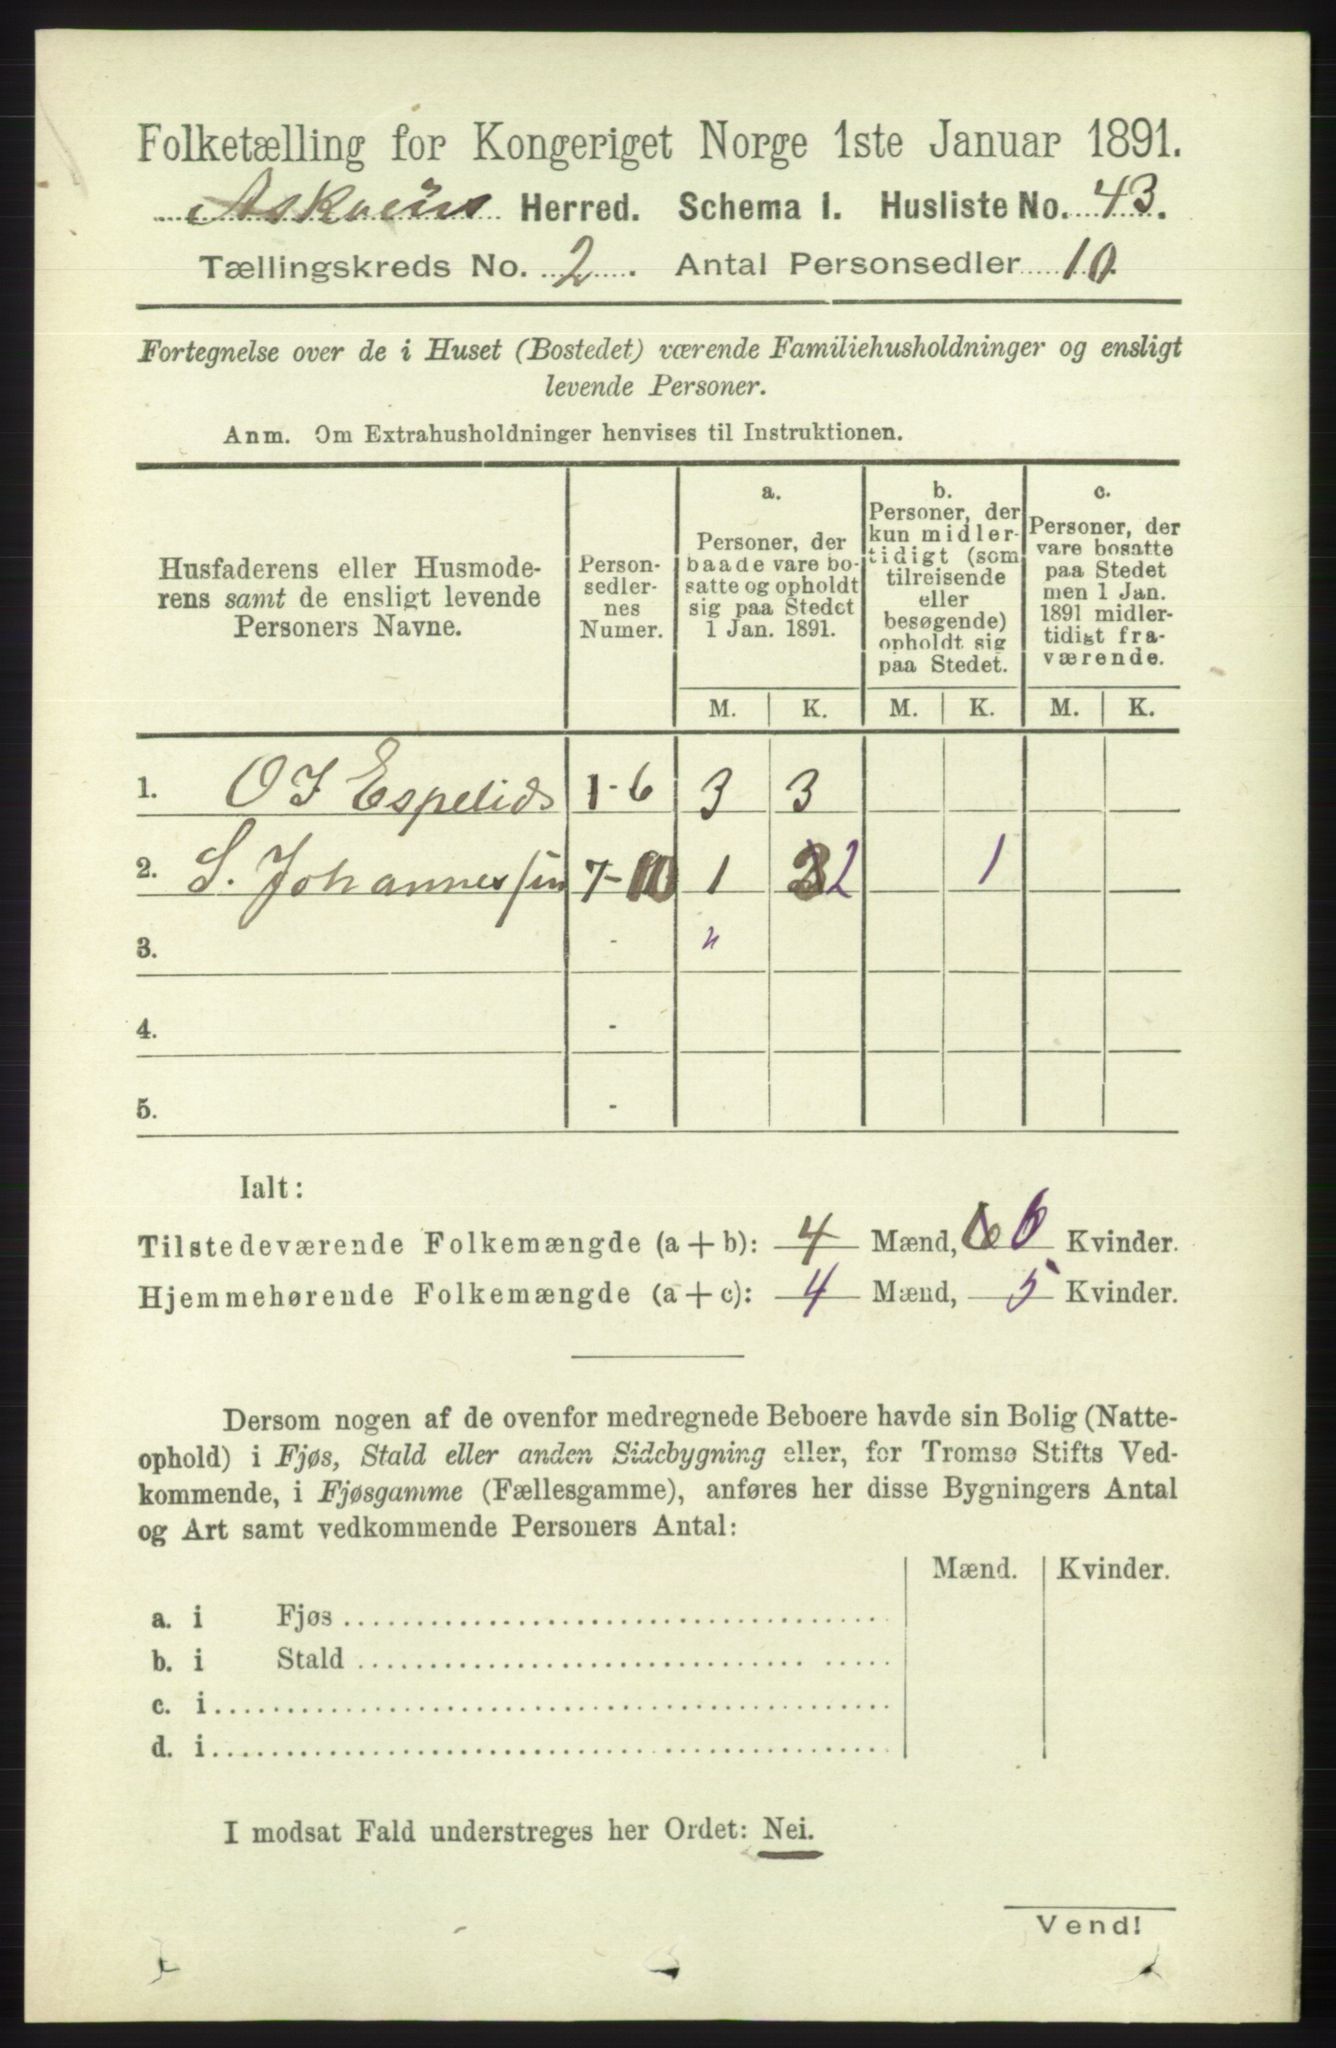 Folketælling for Kongeriget Norge 1ste Januar 1891.
Herred. Schema 1. Husliste No. 43.
Tællingskreds No. 2. Antal Personsedler 10.
Fortegnelse over de i Huset (Bostedet) værende Familiehusholdninger og ensligt
levende Personer.
Anm. Om Extrahusholdninger henvises til Instruktionen.
Husfaderens eller Husmode-
rens samt de ensligt levende
Personers Navne.
Person-
sedler-
nes
Numer.
a.
Personer, der
baade vare bo-
satte og opholdt
sig paa Stedet
1 Jan. 1891.
b.
Personer, der
kun midler-
tidigt (som
tilreisende
eller
besøgende)
opholdt sig
paa Stedet.
c.
Personer, der
vare bosatte
paa Stedet
men 1 Jan.
1891 midler-
tidigt fra-
værende.
M. K. M. K. M. K.
1. O J Espelids 1-6 3 3
2. S. Johannessen 7-10 1 2 1
3. - "
4. -
5. -
Ialt:
Tilstedeværende Folkemængde (a + b): 4 Mænd, 6 Kvinder.
Hjemmehørende Folkemængde (a + c): 4 Mænd, 5 Kvinder.
Dersom nogen af de ovenfor medregnede Beboere havde sin Bolig (Natte-
ophold) i Fjøs, Stald eller anden Sidebygning eller, for Tromsø Stifts Ved-
kommende, i Fjøsgamme (Fællesgamme), anføres her disse Bygningers Antal
og Art samt vedkommende Personers Antal:
Mænd. Kvinder.
a. i Fjøs
b. i Stald
c. i
d. i
I modsat Fald understreges her Ordet: Nei.
Vend!